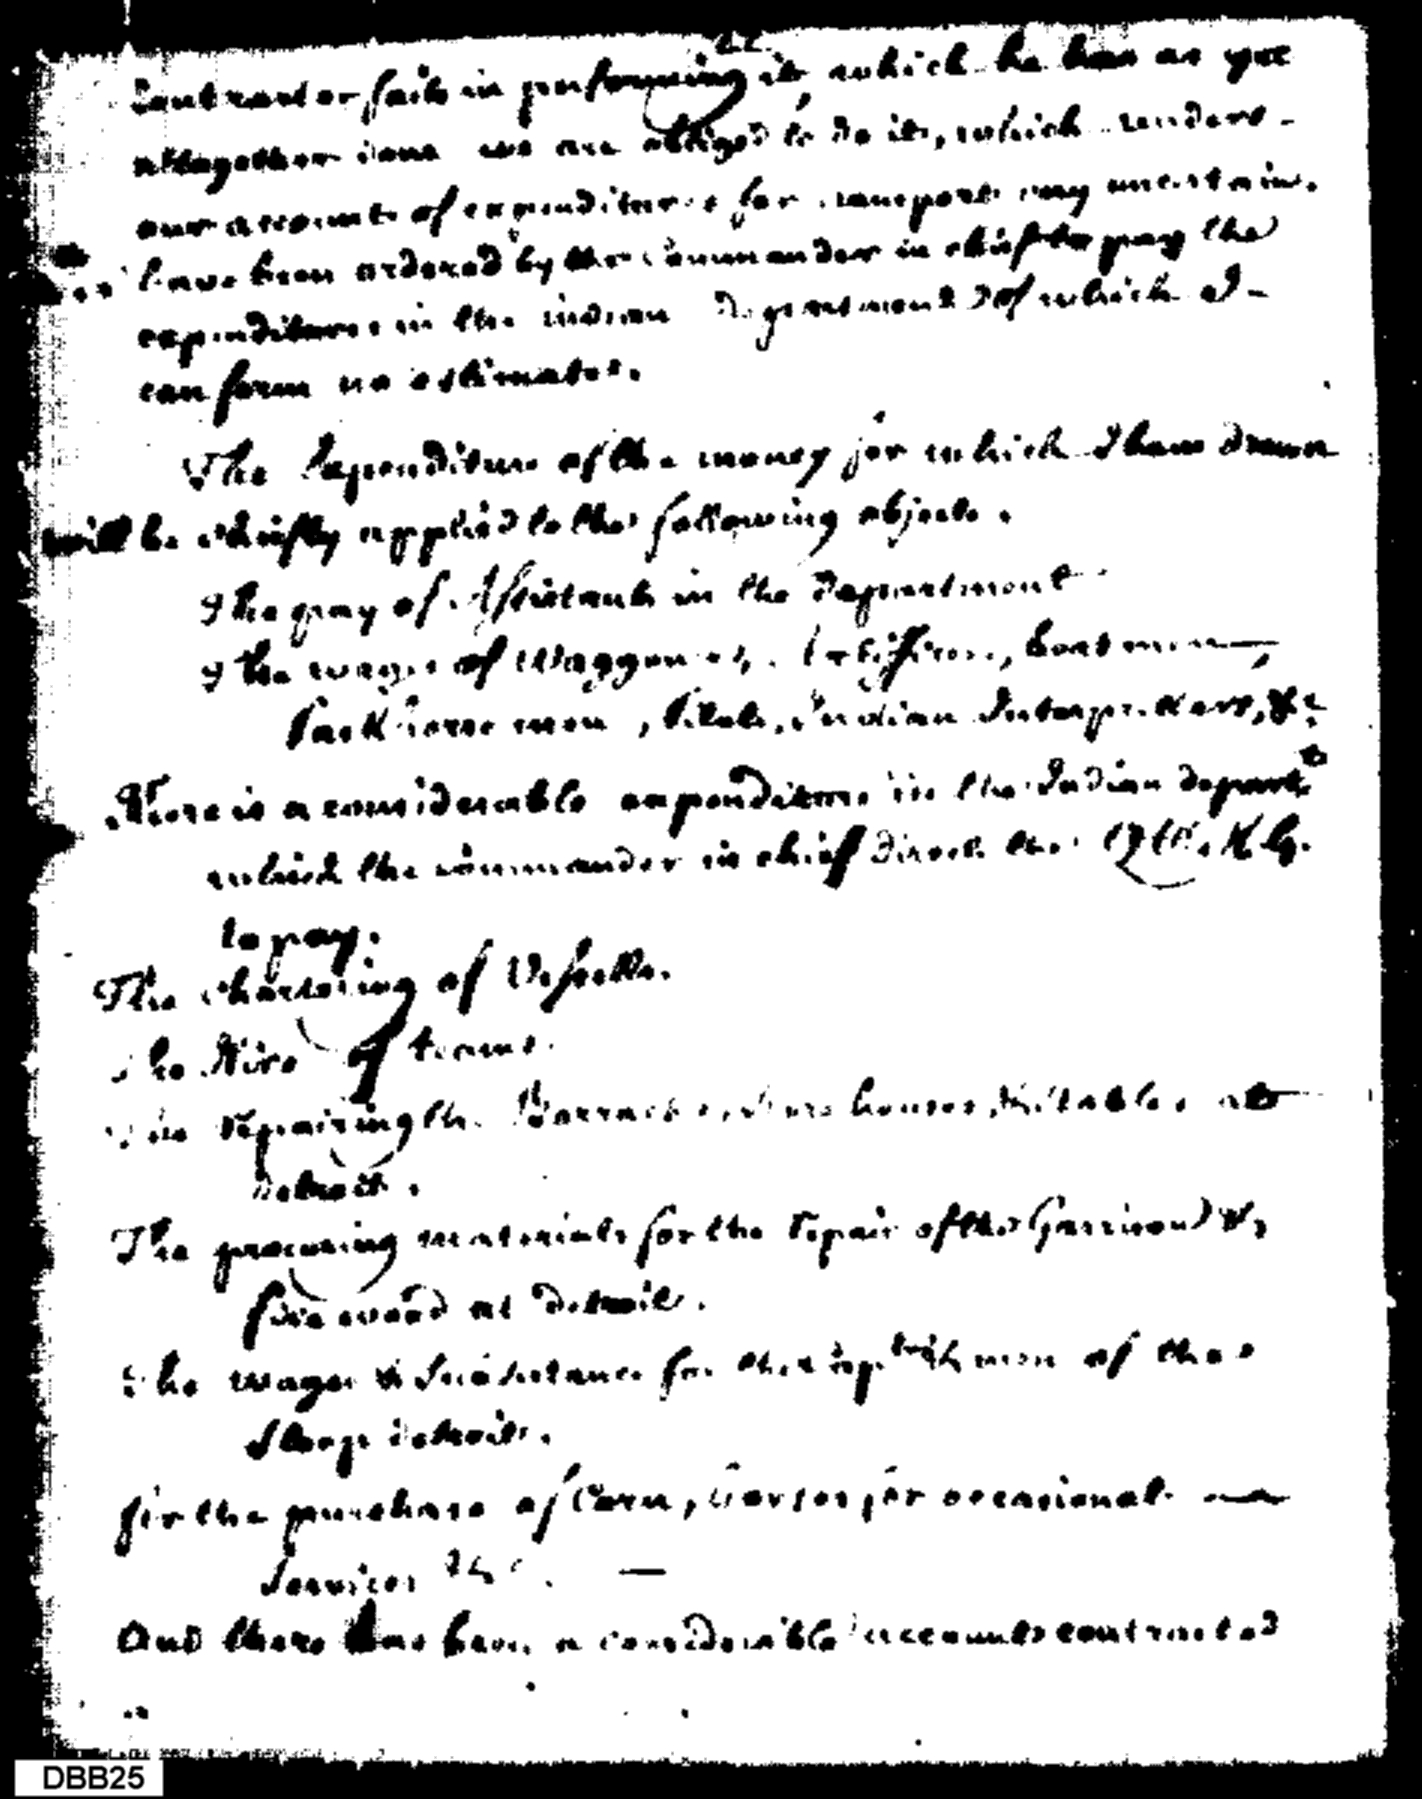 Contractor fails in performing it, which he has as yet
altogether done we are obliged to do it, which renders
our accounts of expenditures for transport very uncertain.
have been ordered by the Commander in chief to pay the
expenditures in the indian department of which I
can form no estimates.
The Expenditure of the money for which I have drawn
will be chiefly applied to the following objects.
The pay of Assistants in the department
The wages of Waggoners, Artificers, boatmen,
Packhorse men, Pilots, Indian Interpretters, &c
There is a considerable expenditure in the Indian departt
which the commander in chief directs the Q M. G.
to pay.
The Chartering of Vessells.
The Hire of teams.
The repairing the Barracks, Store houses, & Stables at
detroit.
The procuring materials for the repair of the Garrison &
fire wood at detroit.
The wages & Subsistance for the men of the
Sloop detroit.
for the purchase of Corn, horses for occasional
Services &c.
And there has been a considerable accounts contracted
DBB25